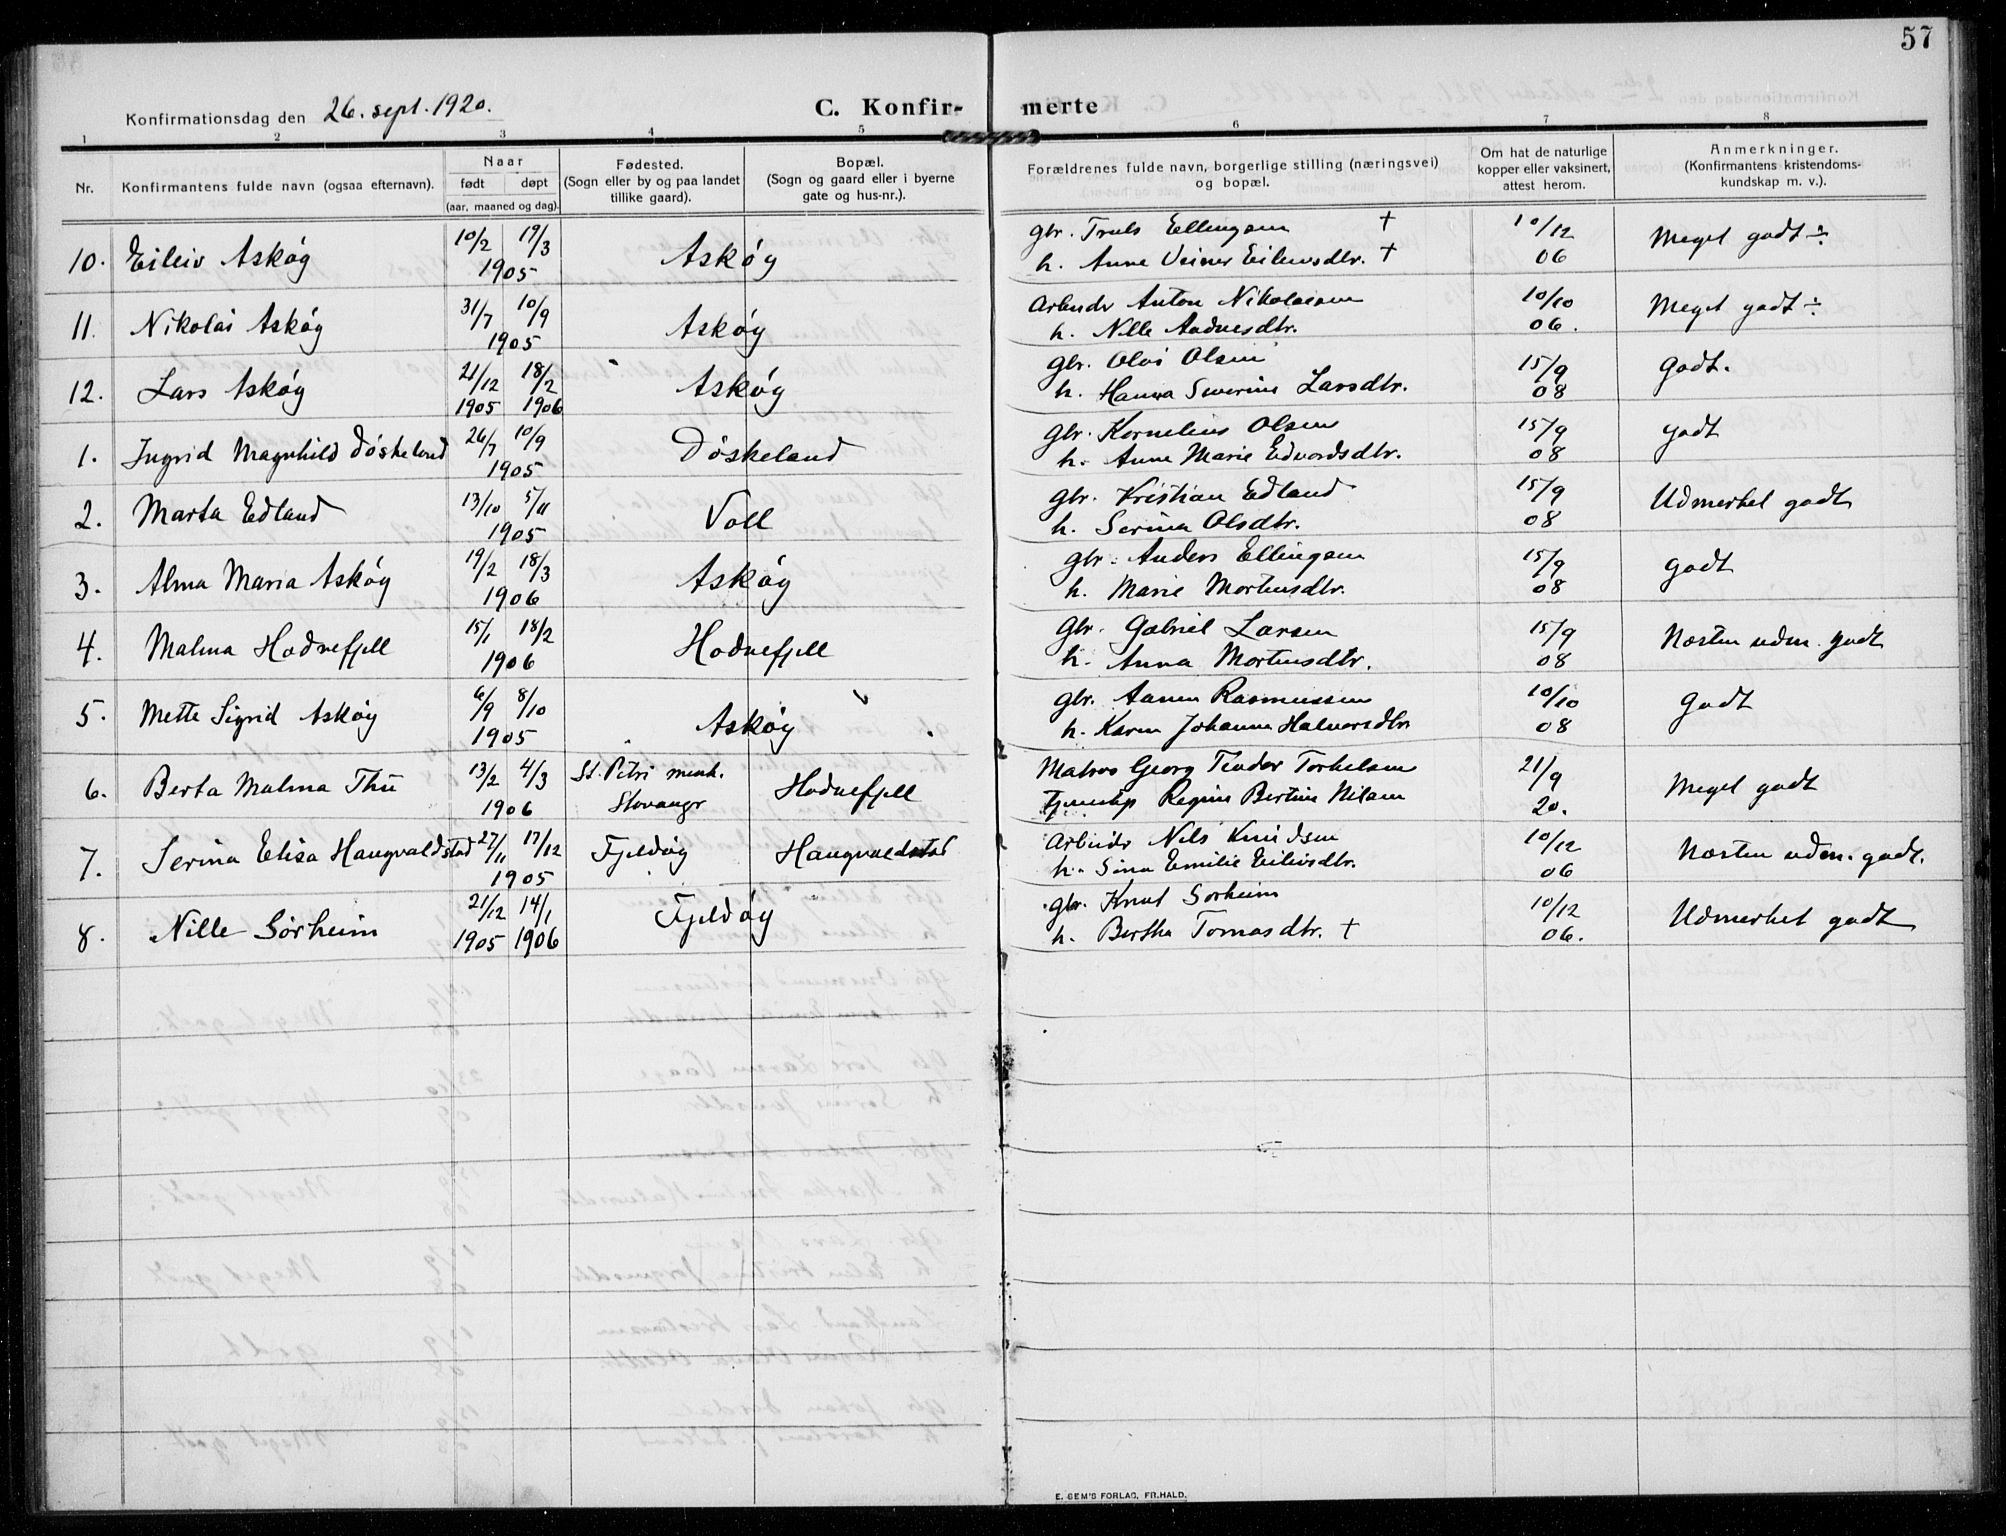 57
Konfirmationsdag den 26. sept. 1920.
C. Konfir- merte
1 2 3 4 5 6 7 8
Nr.
Konfirmantens fulde navn (ogsaa efternavn).
Naar
født døpt
(aar, maaned og dag).
Fødested.
(Sogn eller by og paa landet
tillike gaard).
Bopæl.
(Sogn og gaard eller i byerne
gate og hus-nr.).
Forældrenes fulde navn, borgerlige stilling (næringsvei)
og bopæl.
Om hat de naturlige
kopper eller vaksinert,
attest herom.
Anmerkninger.
(Konfirmantens kristendoms-
kundskap m. v.).
10. Eileiv Askøy 10/2 19/3 1905 Askøy
gbr. Truls Ellingsen †
h. Anne Eilevsdtr. †
10/12 06
Meget godt ÷
11. Nikolai Askøy 31/7 10/9 1905 Askøy
Arbeider Anton Nikolaisen
h. Nille Aadnesdtr.
10/10 06.
Meget godt ÷
12. Lars Askøy 21/12 1905 18/2 1906 Askøy
gbr. Olai Olsen
h. Hanna Severine Larsdtr.
15/9 08
Godt.
1. Ingrid Magnhild Døskeland 26/7 10/9 1905 Døskeland
gbr. Kornelius Olsen
h. Anne Marie Edvardsdtr.
15/9 08
godt
2. Marta Edland 13/10 5/11 1905 Voll
gbr. Kristian Edland
h. Serina Olsdtr.
15/9 08
Udmerket godt
3. Alma Maria Askøy 19/2 18/3 1906 Askøy
gbr. Anders Ellingsen
h. Marie Mortensdtr.
15/9 08
godt
4. Malma Hodnefjell 15/1 18/2 1906 Hodnefjell
gbr. Gabriel Larsen
h. Anna Mortensdtr.
15/9 08
Næsten udm. godt
5. Mette Sigrid Askøy 6/9 8/10 1905 Askøy
gbr. Aanen Rasmussen
h. Karen Johanne Halvorsdtr
10/10 08
Godt
6. Berta Malma Thu 13/2 4/3 1906 St. Petri menh. Stavanger Hodnefjell
Matros Georg Teodor Torkelsen
Regine Bertine Nilsen
21/9 20.
Meget godt
7. Serina Elisa Haugvaldstad 27/11 17/12 1905 Fjeldøy Haugvaldstad
Arbeider Nils Knudsen
h. Sina Emilie Eilevsdtr.
10/12 06
Næsten udm. godt.
8. Nille Sørheim 21/12 1905 14/1 1906 Fjeldøy
gbr. Knut Sørheim
h. Bertha Tomasdtr. †
10/12 06.
Udmerket godt
E. SEM'S FORLAG, FR.HALD.